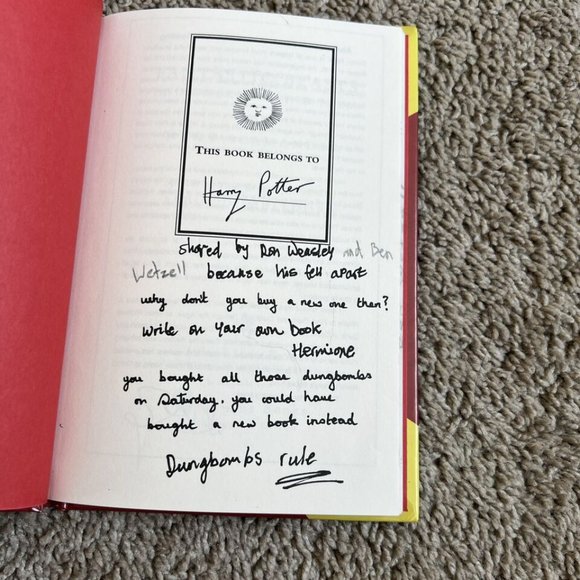 THIS BOOK BELONGS TO
Harry Potter
shared by Ron Weasley and Ben
Wetzell because his fell apart
why don't you buy a new one then?
write on your own book
Hermione
you bought all those dungbombs
on Saturday. you could have
bought a new book instead
Dungbombs rule